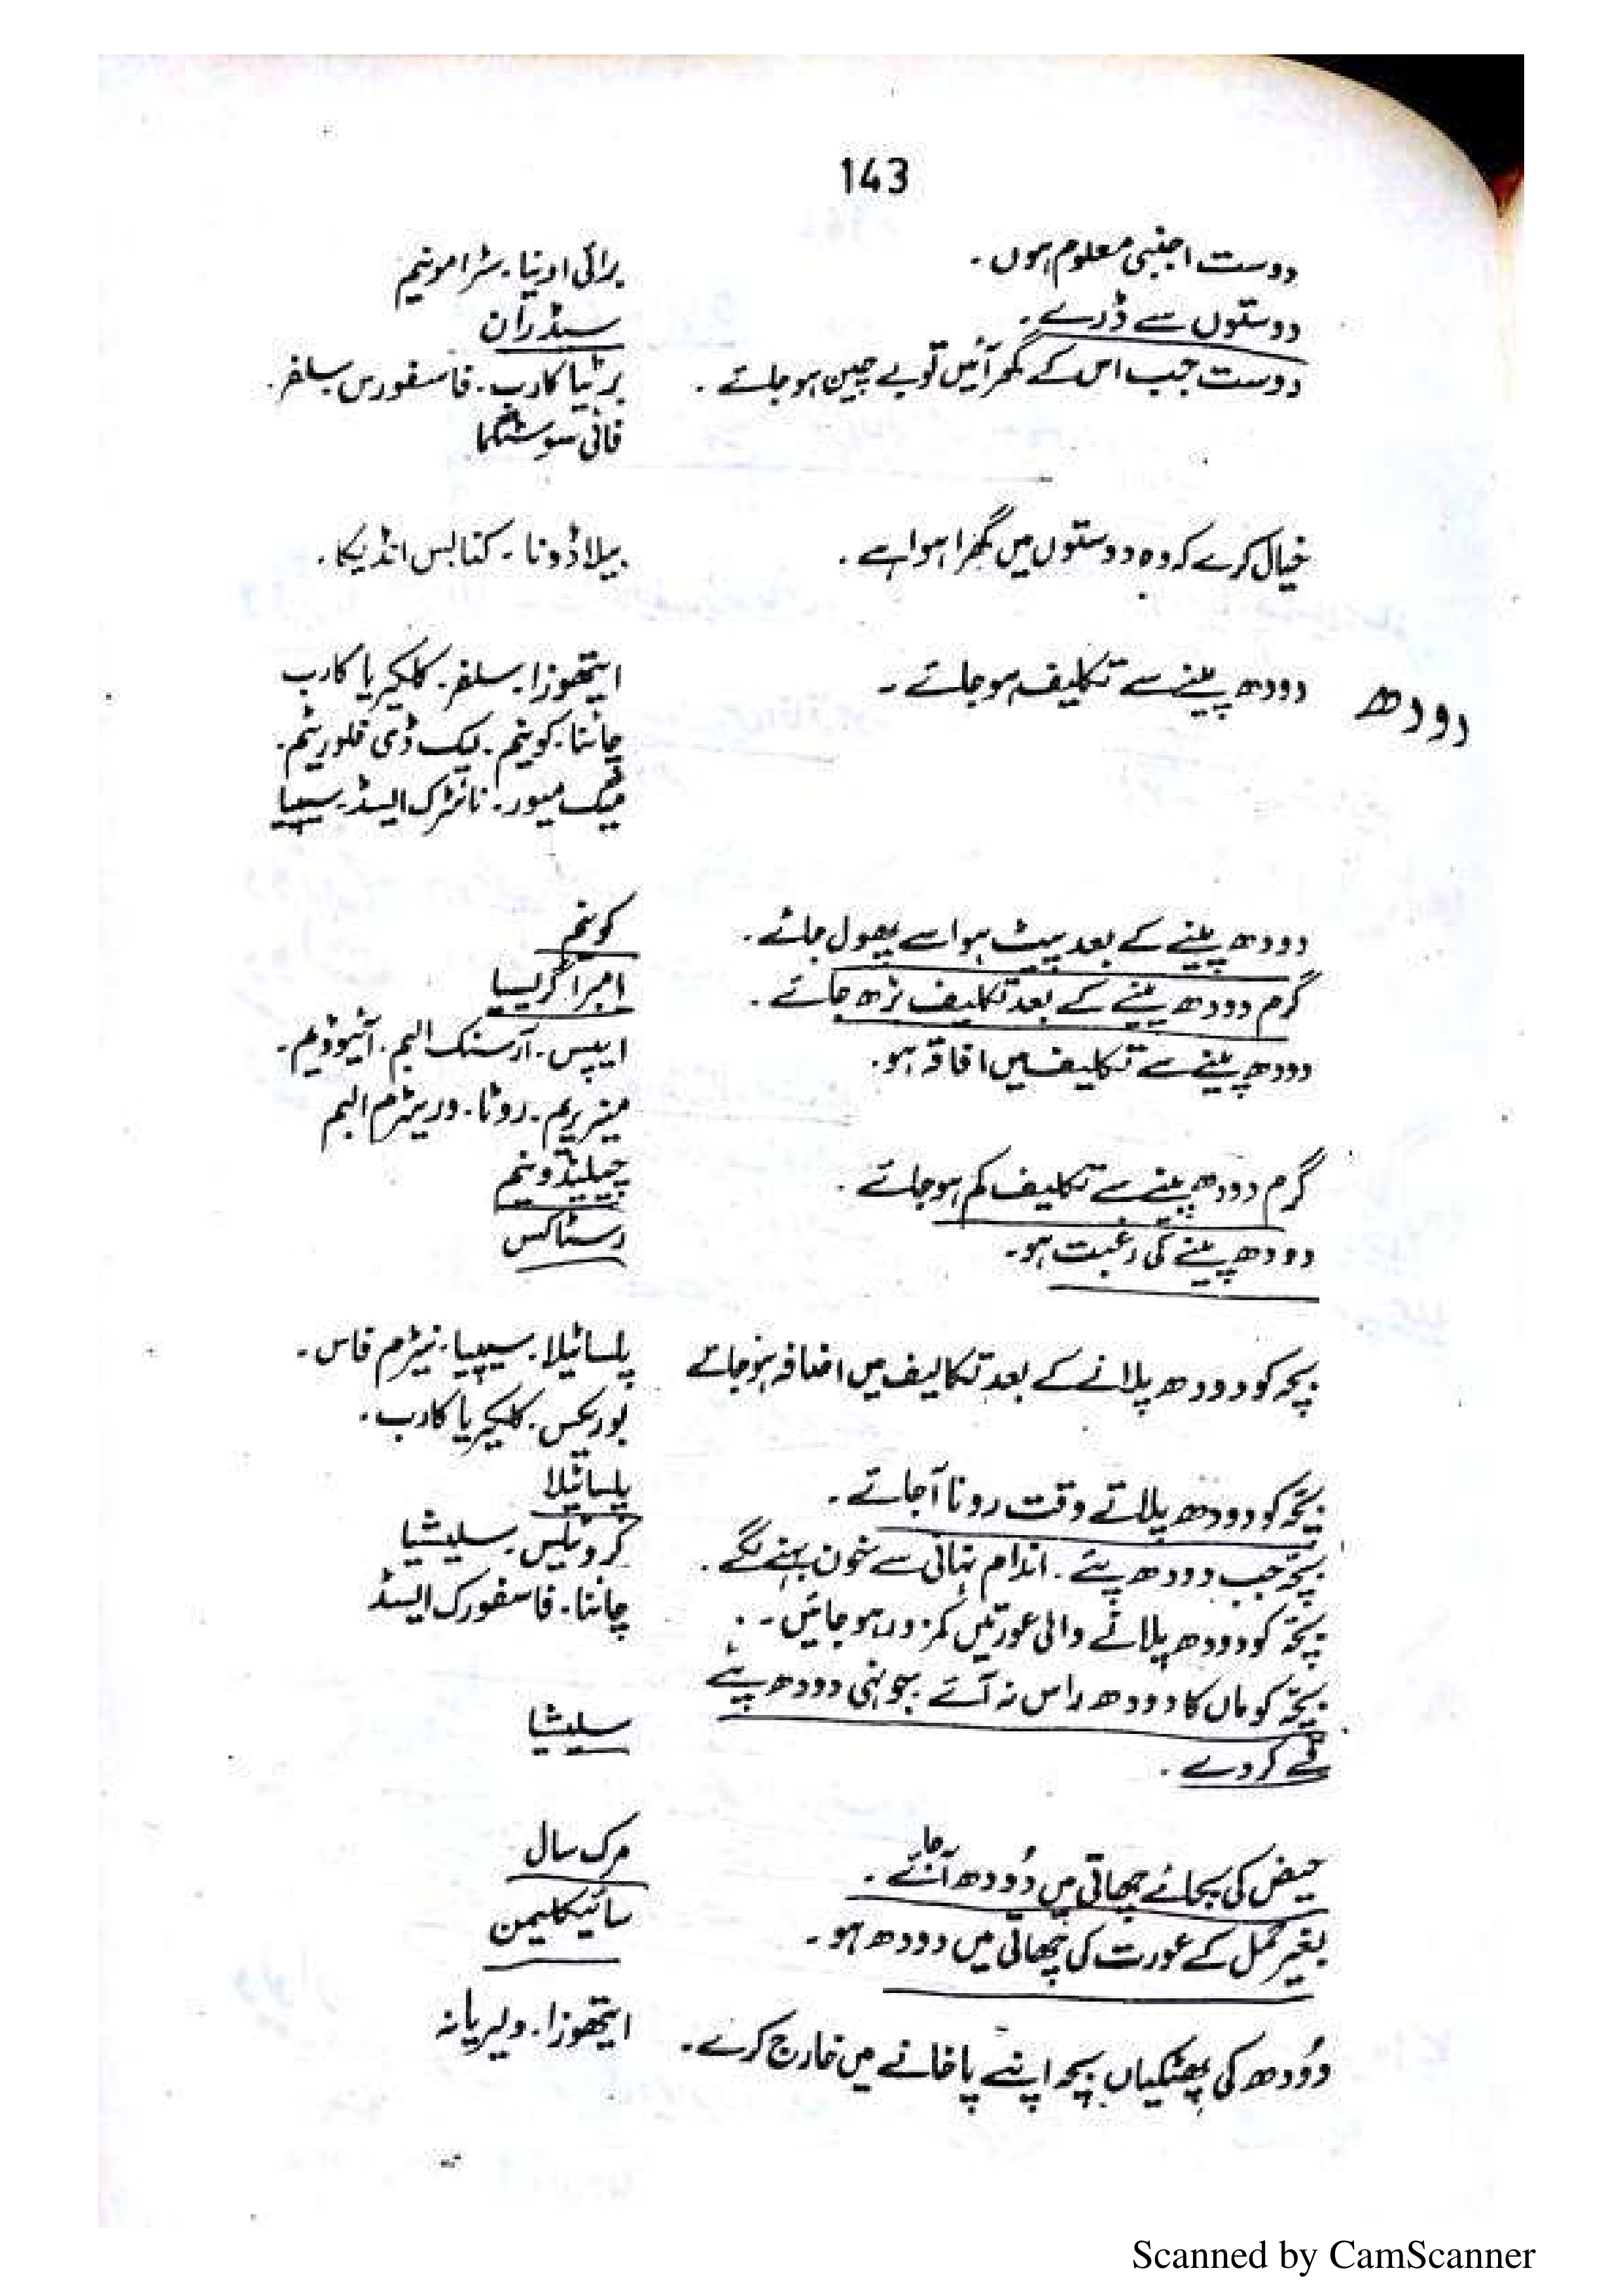 143
دوست اجنبی معلوم ہوں۔ برائی اونیا۔ سٹرامونیم
دوستوں سے ڈرے۔ سیڈران
دوست جب اس کے گھر آئیں تو بے چین ہو جائے۔ برٹیا کارب۔ فاسفورس سلفر۔
فائی سوسٹگما
خیال کرے کہ وہ دوستوں میں گھرا ہوا ہے۔ بیلاڈونا۔ کنابس انڈیکا۔
دودھ دودھ پینے سے تکلیف ہو جائے۔ ایتھوزا۔ سلفر۔ کلکیریا کارب
چائنا۔ کونیم۔ لیک ڈی فلوریٹم۔
میگ میور۔ نائٹرک ایسڈ۔ سیپیا
دودھ پینے کے بعد پیٹ ہوا سے پھول جائے۔ کونیم
گرم دودھ پینے کے بعد تکلیف بڑھ جائے۔ امبرا گریسیا
دودھ پینے سے تکلیف میں افاقہ ہو۔ ایپس۔ آرسنک البم۔ آئیوڈیم۔
میزیریم۔ روٹا۔ وریٹرم البم
گرم دودھ پینے سے تکلیف کم ہو جائے۔ چیلیڈونیم
دودھ پینے کی رغبت ہو۔ رسٹاکس
بچہ کو دودھ پلانے کے بعد تکالیف میں اضافہ ہو جائے پلساٹیلا۔ سیپیا۔ نیٹرم فاس۔
بوریکس۔ کلیکیریا کارب۔
بچّہ کو دودھ پلاتے وقت رونا آ جائے۔ پلساٹیلا
بچّہ جب دودھ پئے۔ اندام نہانی سے خون بہنے لگے۔ کروٹیلس۔ سلیشیا
بچّہ کو دودھ پلانے والی عورتیں کمزور ہو جائیں۔ چائنا۔ فاسفورک ایسڈ
بچّہ کو ماں کا دودھ راس نہ آئے۔ جونہی دودھ پئے
قے کر دے۔ سلیشیا
حیض کی بجائے چھاتی میں دُودھ آ جائے۔ مرک سال
بغیر حمل کے عورت کی چھاتی میں دودھ ہو۔ سائیکلیمن
دُودھ کی پھٹکیاں بچہ اپنے پاخانے میں خارج کرے۔ ایتھوزا۔ ولیریانہ
Scanned by CamScanner